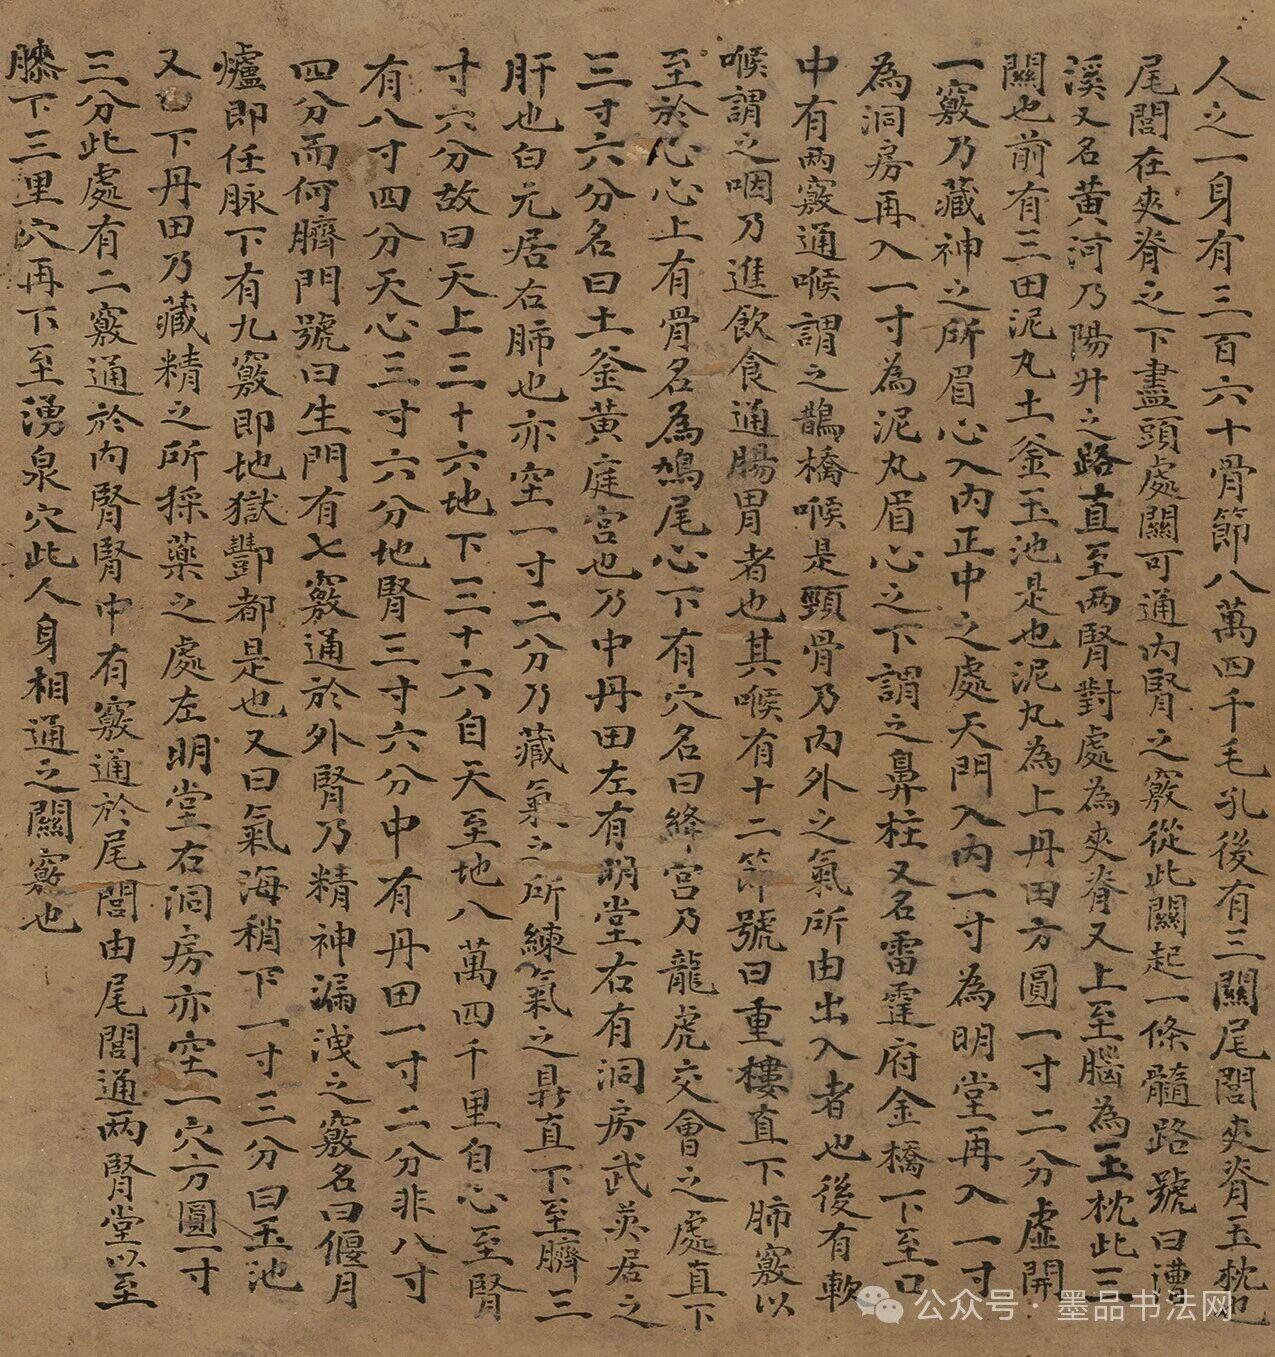 人之一身有三百六十骨節八萬四千毛孔後有三關尾閭夾脊玉枕也
尾閭在夾脊之下盡頭處關可通內腎之竅從此關起一條髓路號曰漕
溪又名黃河乃陽升之路直至两腎對處為夾脊又上至腦為玉枕此三
關也前有三田泥丸土釜玉池是也泥丸為上丹田方圓一寸二分虛開
一竅乃藏神之所眉心入內正中之處天門入內一寸為明堂再入一寸
為洞房再入一寸為泥丸眉心之下謂之鼻柱又名雷霆府金橋下至口
中有两竅通喉謂之鵲橋喉是頸骨乃內外之氣所由出入者也後有軟
喉謂之咽乃進飲食通腸胃者也其喉有十二節號曰重樓直下肺竅以
至於心心上有骨名為鳩尾心下有穴名曰絳宮乃龍虎交會之處直下
三寸六分名曰土釜黃庭宮也乃中丹田左有明堂右有洞房武英居之
肝也白元居右肺也亦空一寸二分乃藏氣之所練氣之鼎直下至臍三
寸六分故曰天上三十六地下三十六自天至地八萬四千里自心至腎
有八寸四分天心三寸六分地腎三寸六分中有丹田一寸二分非八寸
四分而何臍門號曰生門有七竅通於外腎乃精神漏洩之竅名曰偃月
爐即任脉下有九竅即地獄酆都是也又曰氣海稍下一寸三分曰玉池
又曰下丹田乃藏精之所採藥之處左明堂右洞房亦空一穴方圓一寸
三分此處有二竅通於內腎腎中有竅通於尾閭由尾閭通两腎堂以至
膝下三里穴再下至湧泉穴此人身相通之關竅也
公众号·墨品书法网